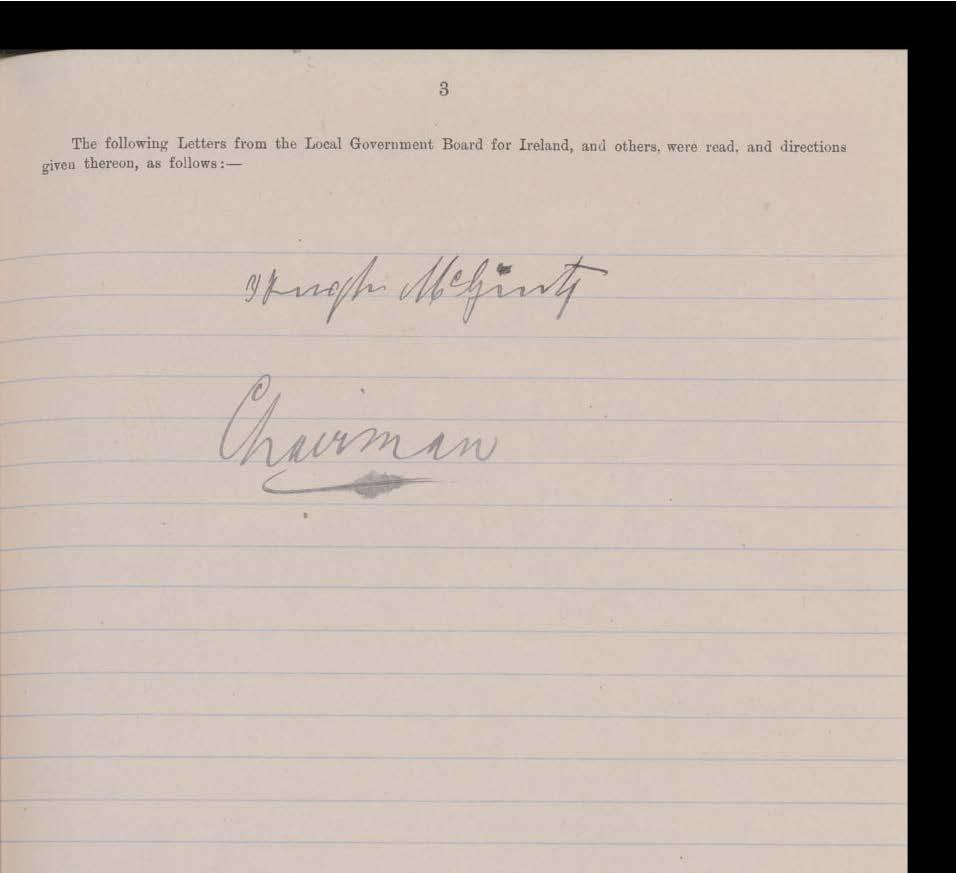 3
The following Letters from the Local Government Board for Ireland, and others, were read, and directions
given thereon, as follows:—
Hugh McGinty
Chairman